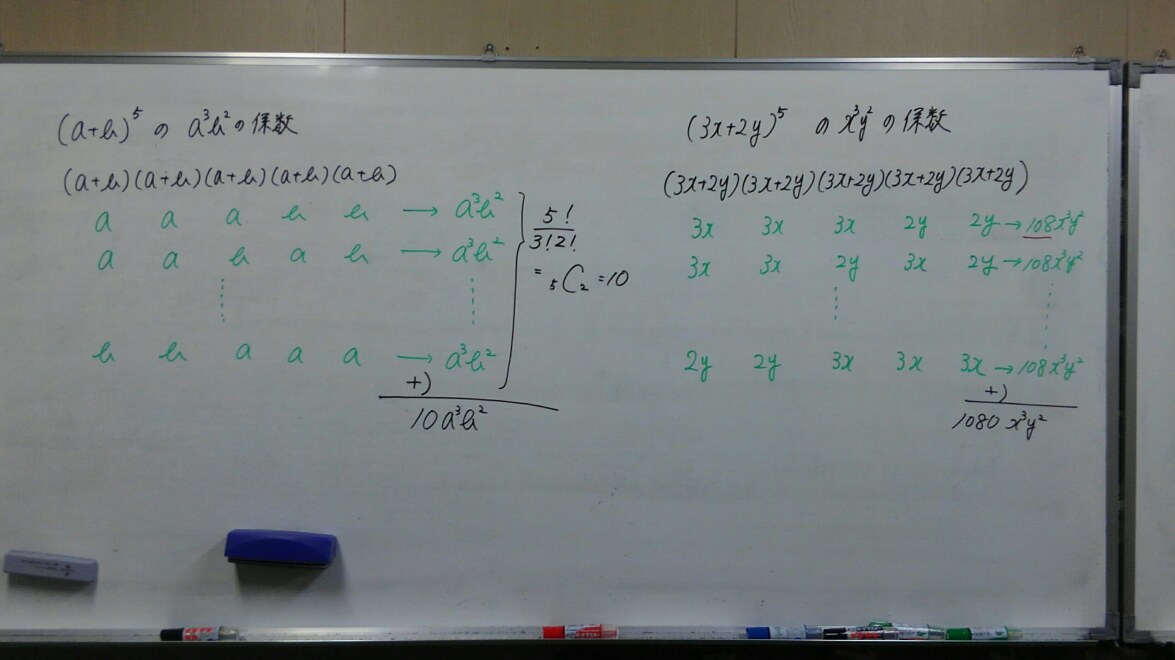 (a+b)⁵ の a³b²の係数
(a+b)(a+b)(a+b)(a+b)(a+b)
a a a b b → a³b²
a a b a b → a³b²
b b a a a → a³b²
+)
10a³b²
5!
3!2!
= ₅C₂ =10
(3x+2y)⁵ の x³y² の係数
(3x+2y)(3x+2y)(3x+2y)(3x+2y)(3x+2y)
3x 3x 3x 2y 2y → 108x³y²
3x 3x 2y 3x 2y → 108x³y²
2y 2y 3x 3x 3x → 108x³y²
+)
1080 x³y²